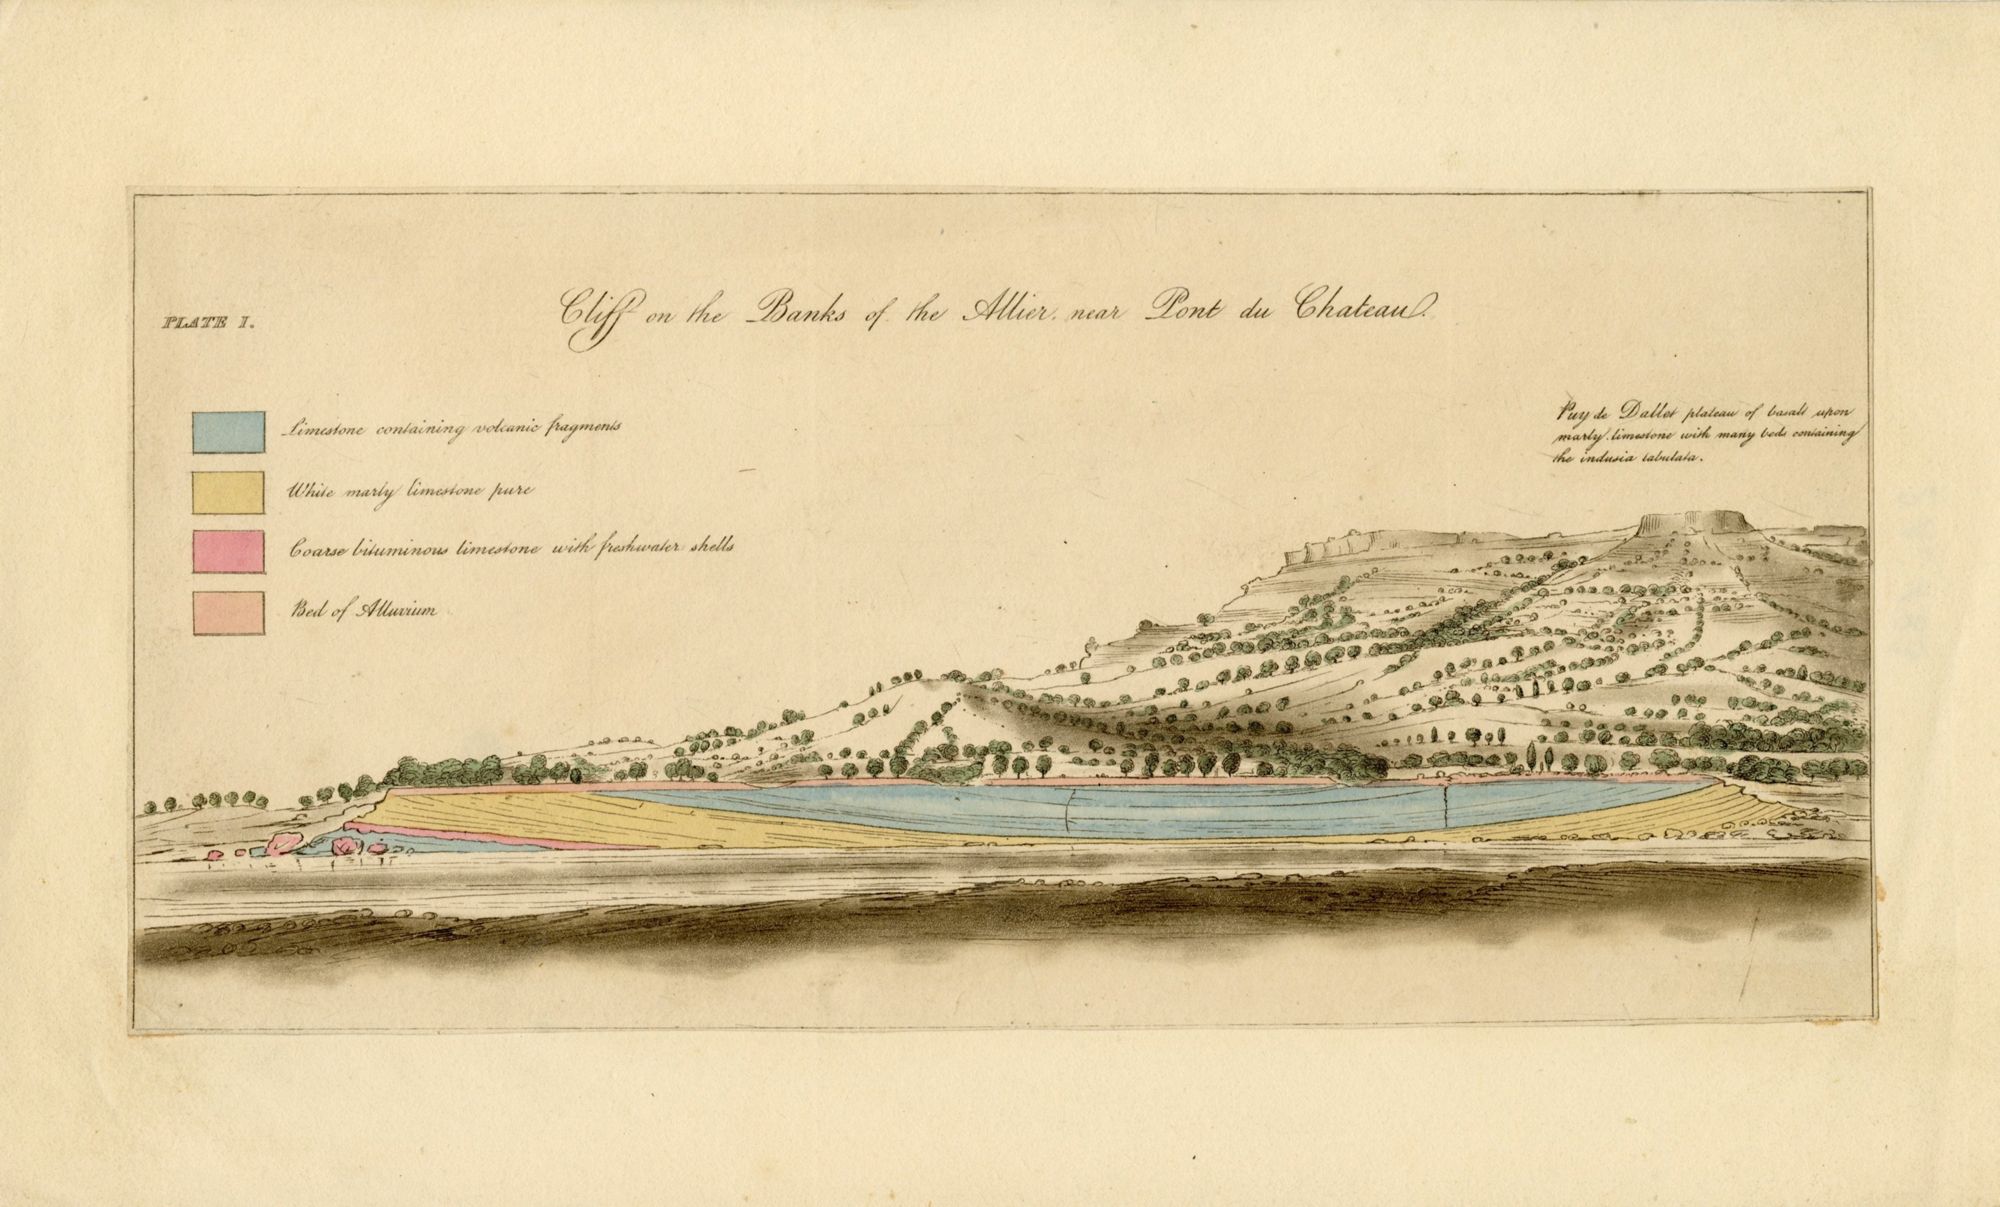 PLATE I.
Cliff on the Banks of the Allier near Pont du Chateau.
Limestone containing volcanic fragments
White marly limestone pure
Coarse bituminous limestone with freshwater shells
Bed of Alluvium
Puy de Dallet plateau of basalt upon
marly limestone with many beds containing
the indusia tabulata.